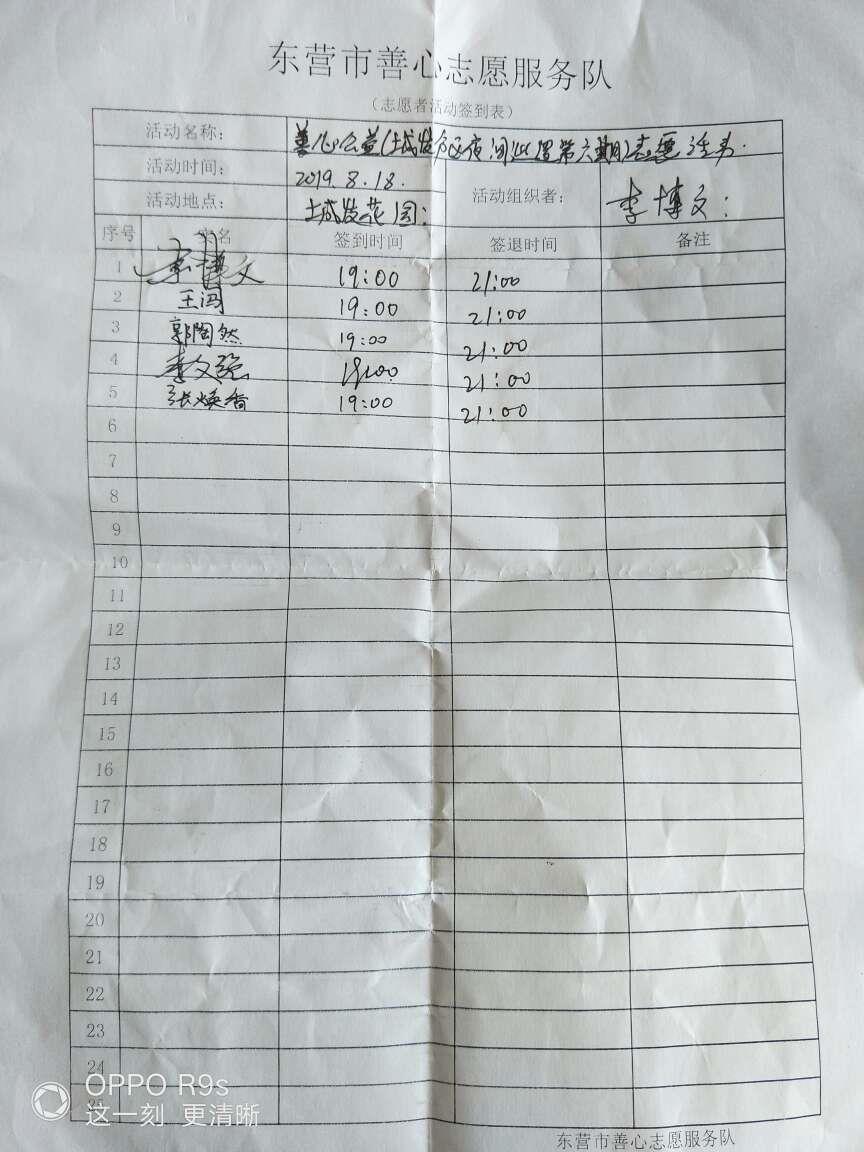 东营市善心志愿服务队
(志愿者活动签到表)
活动名称: 善心公益(城发小区夜间巡逻第六期)志愿活动.
活动时间: 2019.8.18.
活动地点: 城发花园: 活动组织者: 李博文:
序号 实名 签到时间 签退时间 备注
1 李博文 19:00 21:00
2 王冯 19:00 21:00
3 郭陶然 19:00 21:00
4 李文强 19:00 21:00
5 张焕香 19:00 21:00
6
7
8
9
10
11
12
13
14
15
16
17
18
19
20
21
22
23
24
OPPO R9s
这一刻 更清晰
东营市善心志愿服务队